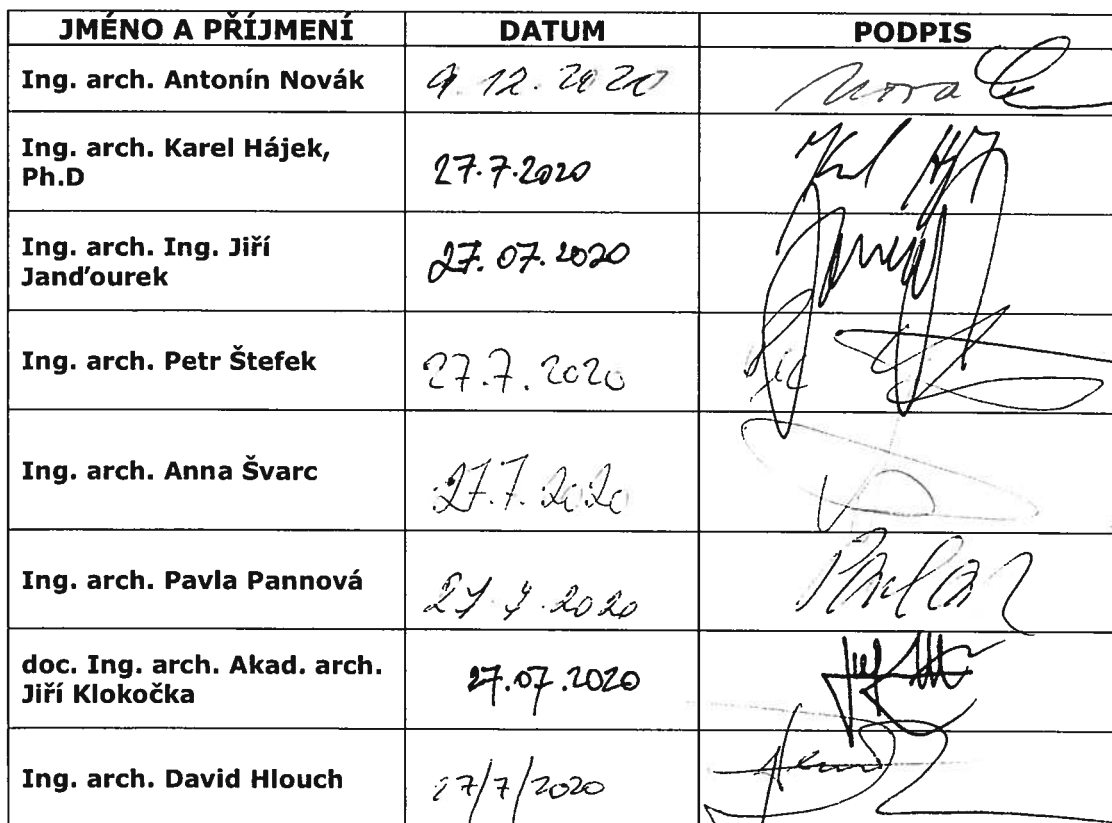 JMÉNO A PŘÍJMENÍ DATUM PODPIS
Ing. arch. Antonín Novák 9. 12. 2020 Novák
Ing. arch. Karel Hájek,
Ph.D 27.7.2020
Ing. arch. Ing. Jiří
Janďourek 27. 07. 2020
Ing. arch. Petr Štefek 27.7. 2020
Ing. arch. Anna Švarc 27.7.2020
Ing. arch. Pavla Pannová 27.7.2020
doc. Ing. arch. Akad. arch.
Jiří Klokočka 27.07.2020
Ing. arch. David Hlouch 27/7/2020